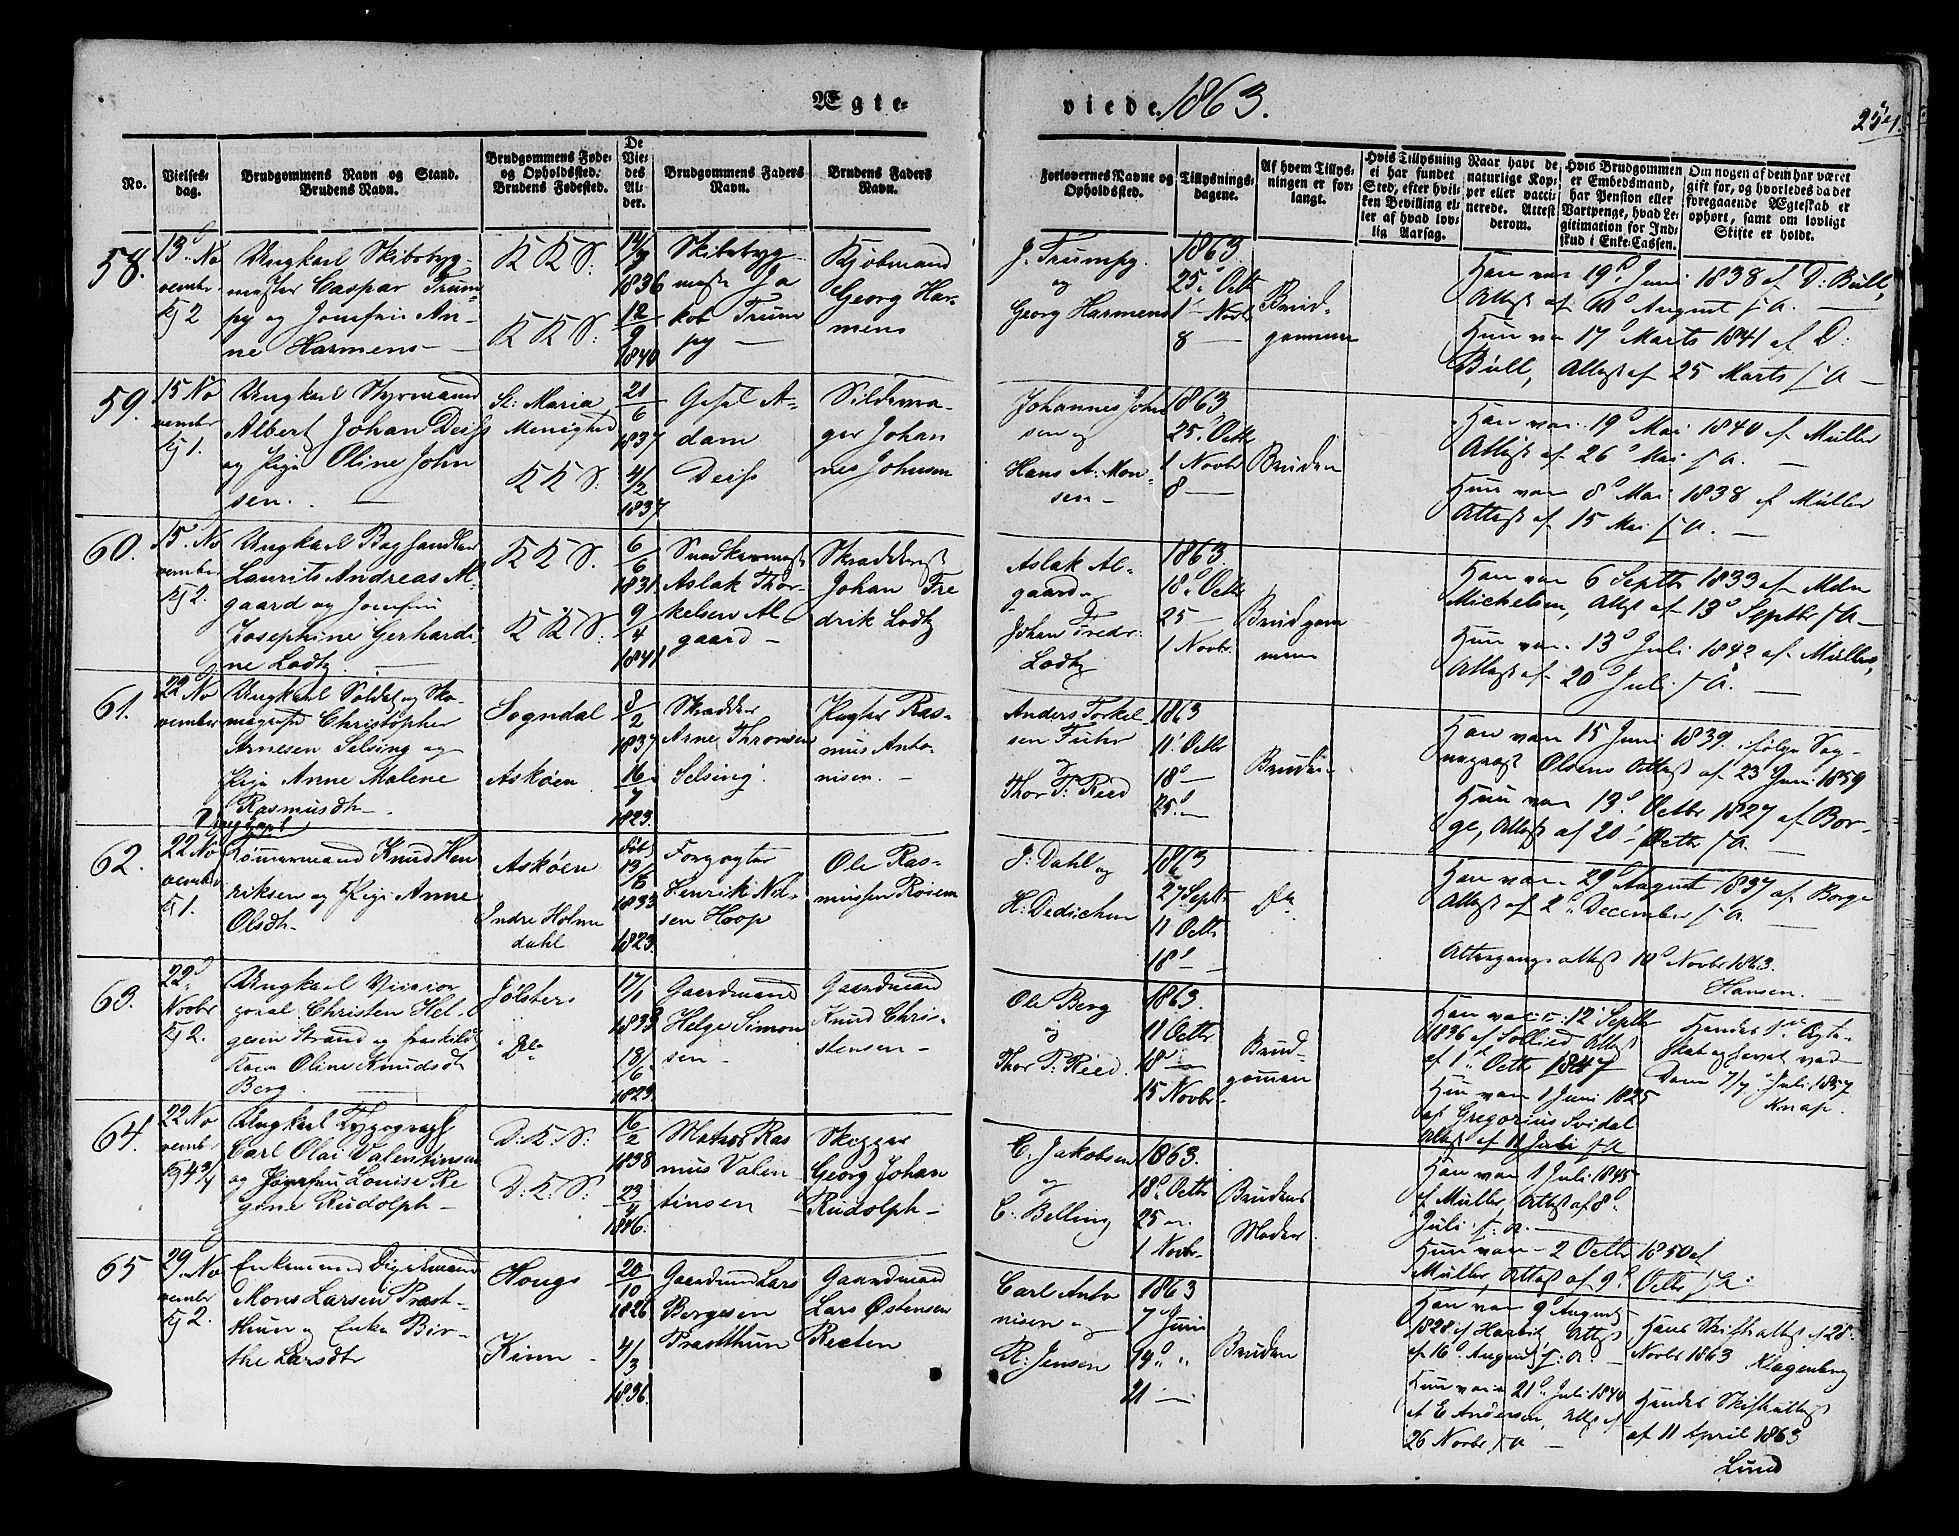 Ægte-
viede 1863.
251.
No.
Vielses-
dag.
Brudgommens Navn og Stand.
Brudens Navn.
Brudgommens Føde-
og Opholdssted.
Brudens Fødested.
De
Vie-
des
Al-
der.
Brudgommens Faders
Navn.
Brudens Faders
Navn.
Forlovernes Navne og
Opholdssted.
Tillysnings-
dagene.
Af hvem Tillys-
ningen er for-
langt.
Hvis Tillysning
ei har fundet
Sted, efter hvil-
ken Bevilling el-
ler af hvad lov-
lig Aarsag.
Naar havt de
naturlige Kop-
per eller vacci-
nerede. Attest
derom.
Hvis Brudgommen
er Embedsmand,
har Pension eller
Vartpenge, hvad Le-
gitimation for Ind-
skud i Enke-Cassen.
Om nogen af dem har været
gift før, og hvorledes da det
foregaaende Ægteskab er
ophørt, samt om lovligt
Skifte er holdt.
58.
13 No
vember
Kj 2
Ungkarl Skibsbyg-
mester Caspar Trum-
py og Jomfru An-
ne Harmens
K K S:
K K S:
14/7
1836
12/9
1840
Skibsbyg
mester Ja
kob Trum
py
Kjøbmand
Georg Har-
mens
J. Trumpy
og
Georg Harmens
1863.
25 Octb
1 Novbr
8 —
Brud-
gommen
Han var 19 Juni 1838 af D: Büll,
Attest af August s A.
Hun var 17 Marts 1841 af D:
Büll, Attest af 25 Marts s A
59.
15 No
vember
Kj 1.
Ungkarl Styrmand
Albert Johan Deiss
og Pige Oline John
sen.
St: Maria
Menighed
K K S:
21/6
1837
4/2
1837
Gesel A-
dam
Deiss
Sildevra-
ger Johan
nes Johnsen
Johannes John
sen og
Hans A: Mon-
sen
1863
25 Octb
1 Novbr
8 —
Bruden
Han var 19 Mai 1840 af Müller
Attest af 26 Mai s A.
Hun var 8 Mai 1838 af Müller
Attest af 15 Mai s A.
60.
15 No
vember
Kj 2.
Ungkarl Boghandler
Laurits Andreas Al-
gaard og Jomfru
Josephine Gerhardi-
ne Lodtz
K K S:
K K S:
6/6
1831
9/4
1841
Snedkermest
Aslak Thor-
kelsen Al
gaard
Skræddermest
Johan Fre
drik Lodtz
Aslak Al-
gaard og
Johan Fredr:
Lodtz
1863.
18 Octbr
25 —
1 Novbr.
Brudgom
men
Han var 6 Septbr 1833 af Mdm
Michelsen, Attest af 13 Septbr s A
Hun var 13 Juli 1842 af Müller,
Attest af 20 Juli s A.
61.
22 No
vember
Ungkarl Soldat og Sko-
magersvd Christopher
Arnesen Selsing og
Pige Anne Malene
Rasmusdtr
Sogndal
Askøen
8/2
1837
16/7
1823.
Skrædder
Arne Thronsen
Selsing
Pagter Ras-
mus Anto-
nisen.
Anders Torkel-
sen Tuhr
og
Thor T: Reed
1863
11 Octbr
18 —
25 —
Bruden
Han var 15 Juni 1839 ifølge Sog-
nepræst Olsens Attest af 23 Juni 1859
Hun var 13 Octbr 1827 af Bor-
ge, Attest af 20 Octbr s A.
62.
22 No
vember
Kj 1.
Tømmermand Knud Hen
riksen og Pige Anne
Olsdtr
Askøen
Indre Holme
dahl
13/8
1833
1823.
Forpagter
Henrik Nil-
sen Hoop
Ole Ras-
mussen Rosem
J: Dahl og
H: Dedichen
1863
27 Septbr
11 Octbr
18 —
Do
Han var 29 August 1837 af Borge
Attest af 2 December s A.
Altergangs attest 10 Novbr 1863.
Hansen.
63.
22
Novbr
Kj 2.
Ungkarl
Christen Hel-
gesen Strand og fraskildt
Kone Oline Knudsdtr
Berg
Jølster
Do
17/1
1833
18/6
1823
Gaardmand
Helge Simon
sen
Gaardmand
Knud Chris-
stensen
Ole Berg
og
Thor T: Reed.
1863.
11 Octbr
18 —
15 Novbr
Brud-
gommen
Han var 12 Septbr
1836 af Sollied Attest
af 1 Octbr 1847
Hun var 1 Juni 1825
af Gregorius Svidal
Attest af 11 Juli s A
Hendes Ægte-
skab ophævet ved
Dom 7/7 Juli 1857
Knap.
64.
22 No
vember
Kj 4 3/4
Ungkarl Typograph
Carl Olai Valentinsen
og Jomfru Louise Re
gine Rudolph
D: K: S:
D: K: S:
16/2
1838
23/4
1826.
Matros Ras
mus Valen
tinsen
Skipper
Georg Johan
Rudolph
C. Jakobsen
og
C. Belling
1863.
18 Octbr
25 —
1 Novbr
Brudens
Moder
Han var 1 Juli 1845
af Müller, Attest af 8
Juli s. A.
Hun var 2 Octbr 1850 af
Müller, Attest af 9 Octbr s A:
65
29 No
vember
Kj 2.
Enkemand
Mons Larsen Præst-
thun og Enke Bir-
the Larsdtr
Hougs
Kinn
20/10
1826
4/3
1836.
Gaardmd Lars
Børgesen
Præstthun
Gaardmand
Lars Østensen
Reeten
Carl Anto
nisen og
R: Jensen
1863
7 Juni
14 "
21 —
Bruden
Han var 9 August
1828 af Harbitz, Attest
af 16 August s: A.
Hun var 21 Juli 1840
af E Andersen, Attest af
26 Novbr s A
Hans Skifteattest af 28
Novbr 1863 Klagenberg
Hendes Skifteattest
af 11 April 1863
Lund